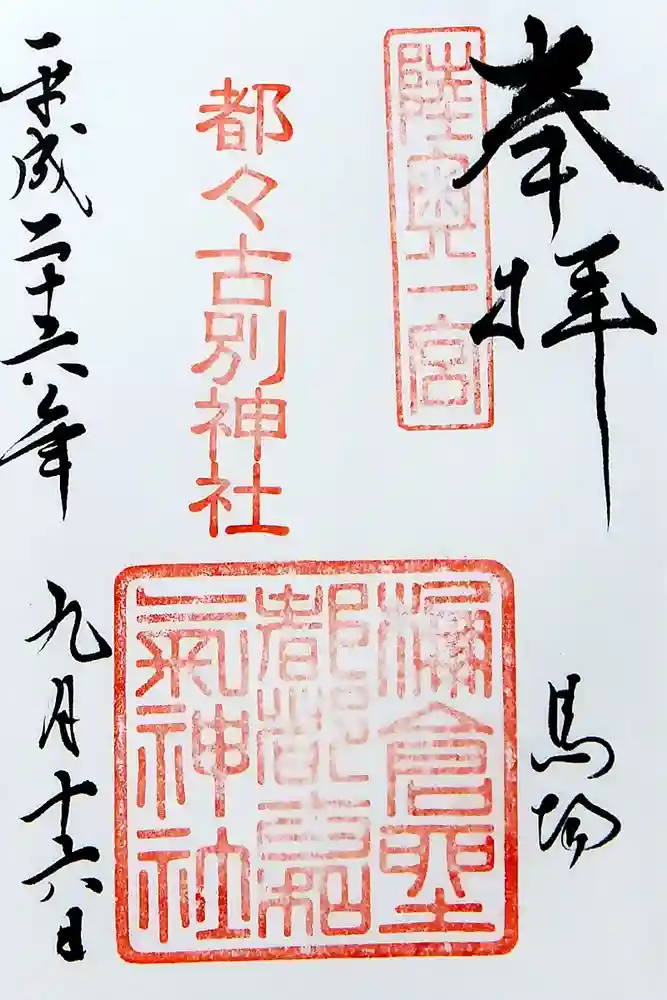 奉拝
陸奥一宮
馬場
都々古別神社
棚倉
都都古和
氣神社
平成二十六年九月十六日